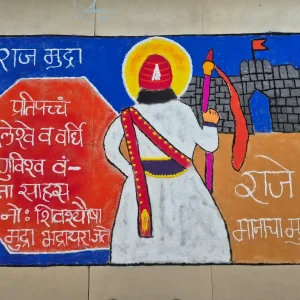 राज मुद्रा
प्रतिपच्चं
लेखे व वर्धि
णुविश्व वं-
ता साहस
नो: शिवश्यौषा
मुद्रा भद्रायराजते
राजे
मानाचा मु